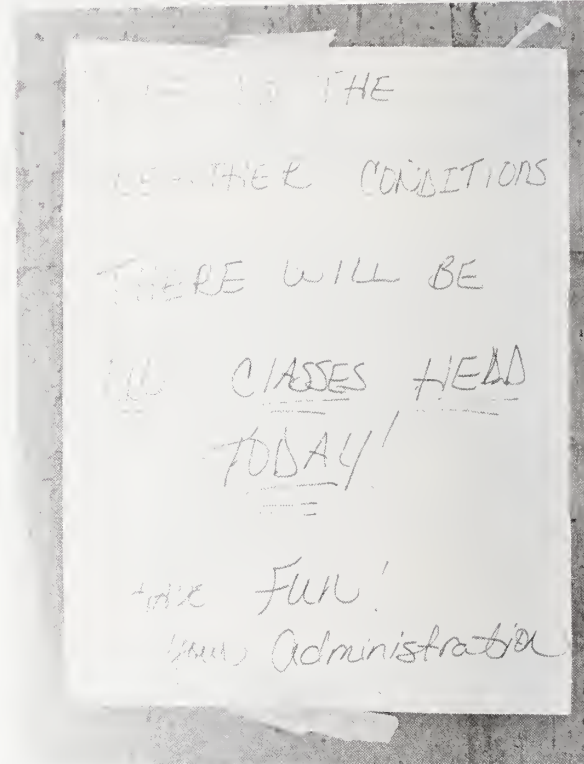 DUE TO THE
WEATHER CONDITIONS
THERE WILL BE
NO CLASSES HELD
TODAY!
HAVE FUN!
Your Administration